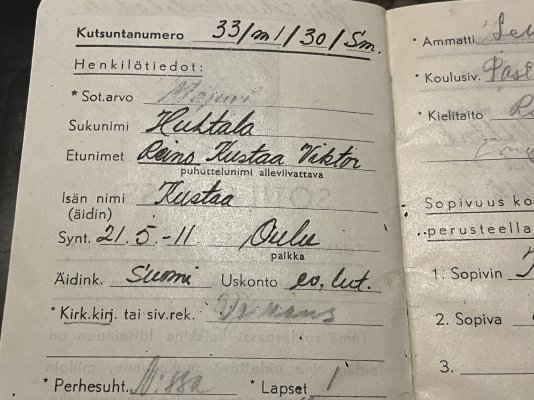 Kutsuntanumero 33/m1/30/Sm.
Henkilötiedot:
* Sot.arvo Majuri
Sukunimi Huhtala
Etunimet Reino Kustaa Viktor
puhuttelunimi alleviivattava
Isän nimi Kustaa
(äidin)
Synt. 21.5.-11 Oulu
paikka
Äidink. Suomi Uskonto ev.lut.
* Kirk.kirj. tai siv.rek.
* Perhesuht. * Lapset 1
* Ammatti
* Koulusiv.
* Kielitaito
Sopivuus ko
perusteella
1. Sopivin
2. Sopiva
3.